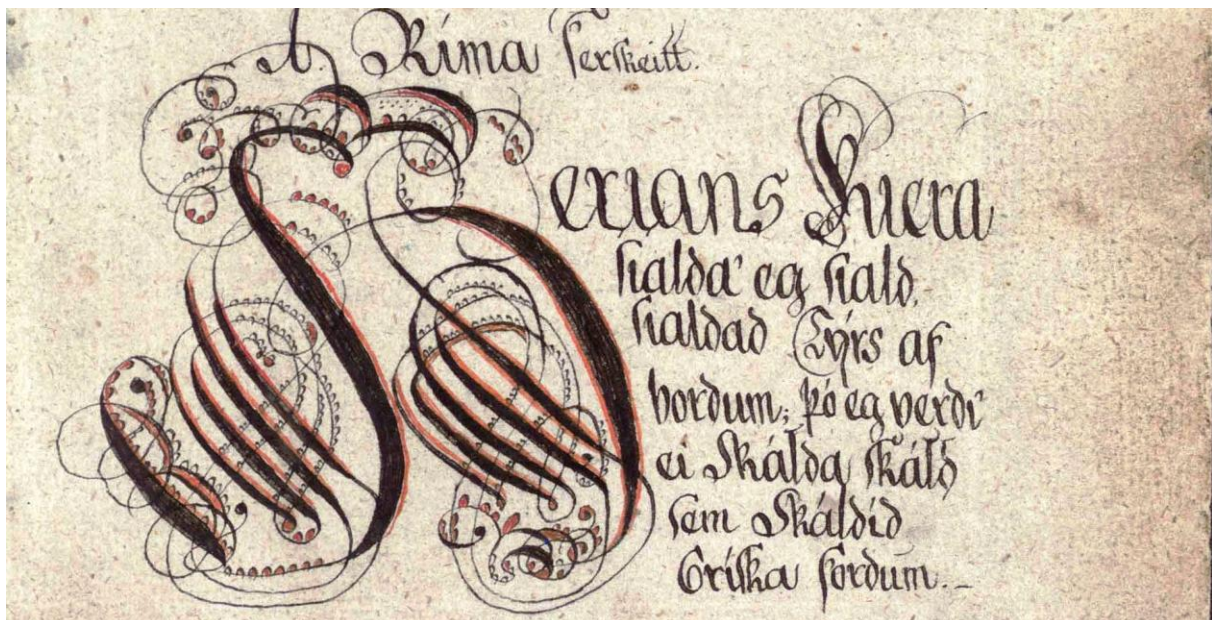 Ríma ferskeitt.
Herians Huera
tialda eg tiald,
tialdad Týrs af
bordum; þó eg verdi
ei Skálda skáld
sem Skáldid
Gríska fordum.-